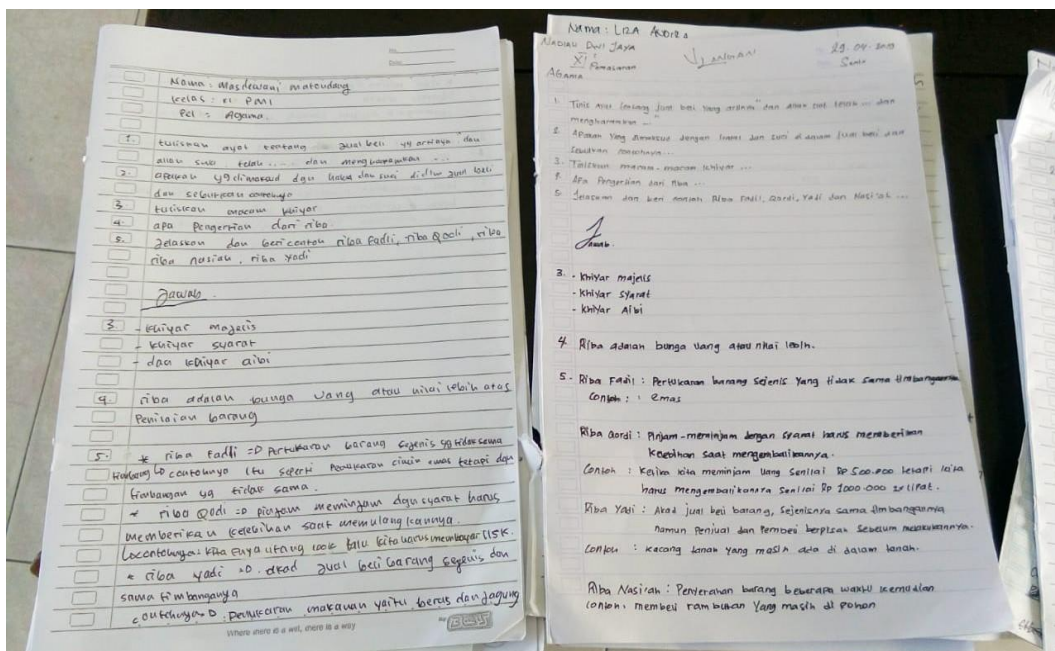 Nama : Masdewani matondang
kelas : XI PM1
Pel : Agama.
1. tuliskan ayat tentang jual beli yg artinya "dan
allah swt telah .... dan mengharamkan ...
2. apakah yg dimaksud dgn luaes dan suci didlm jual beli
dan sebutkan contohnya
3 tuliskan macam khiyar
4. apa Pengertian dari riba
5. Jelaskan dan beri contoh riba Fadli, riba Qodi, riba
riba nasiah, riba yadi
Jawab.
3 - khiyar majelis
- khiyar syarat
- dan khiyar aibi
4. riba adalah bunga uang atau nilai lebih atas
Penilaian barang
5. * riba Fadli => Pertukaran barang sejenis yg tidak sama
timbang contohnya itu seperti Penukaran cincin emas tetapi dgn
timbangan yg tidak sama.
* riba Qodi => pinjam meminjam dgn syarat harus
memberikan kelebihan saat memulangkannya.
contohnya: kita Punya utang 100k lalu kita harus membayar 115k.
* riba yadi => akad jual beli barang sejenis dan
sama timbanganya
contohnya => Penukaran makanan yaitu beras dan jagung
Where there is a will, there is a way
Nama : LIZA ANDIRA
NADIAH DWI JAYA
XI Pemasaran
29-04-2019
Senin
Agama
1. Tulis ayat tentang jual beli yang artinya " dan allah swt telah ... dan
mengharamkan ... "
2. Apakah Yang dimaksud dengan luaes dan suci di dalam jual beli dan
sebutkan contohnya...
3. Tuliskan macam-macam khiyar ...
4. Apa Pengertian dari riba ...
5. Jelaskan dan beri contoh Riba Fadli, Qordi, Yadi dan Nasi'ah ...
Jawab.
3. - Khiyar majelis
- Khiyar syarat
- Khiyar Aibi
4. Riba adalah bunga uang atau nilai lebih.
5. Riba Fadil : Pertukaran barang sejenis Yang tidak sama timbangannya
Contoh : emas
Riba Qordi : Pinjam-meminjam dengan syarat harus memberikan
kelebihan saat mengembalikannya.
Contoh : Ketika kita meminjam uang senilai Rp 500.000 tetapi kita
harus mengembalikannya senilai Rp 1000.000 2x lipat.
Riba Yadi : Akad jual beli barang, sejenisnya sama timbangannya
namun Penjual dan Pembeli berpisah sebelum melakukannya.
Contoh : kacang tanah yang masih ada di dalam tanah.
Riba Nasi'ah : Penyerahan barang beberapa waktu kemudian
Contoh, membeli rambutan Yang masih di pohon